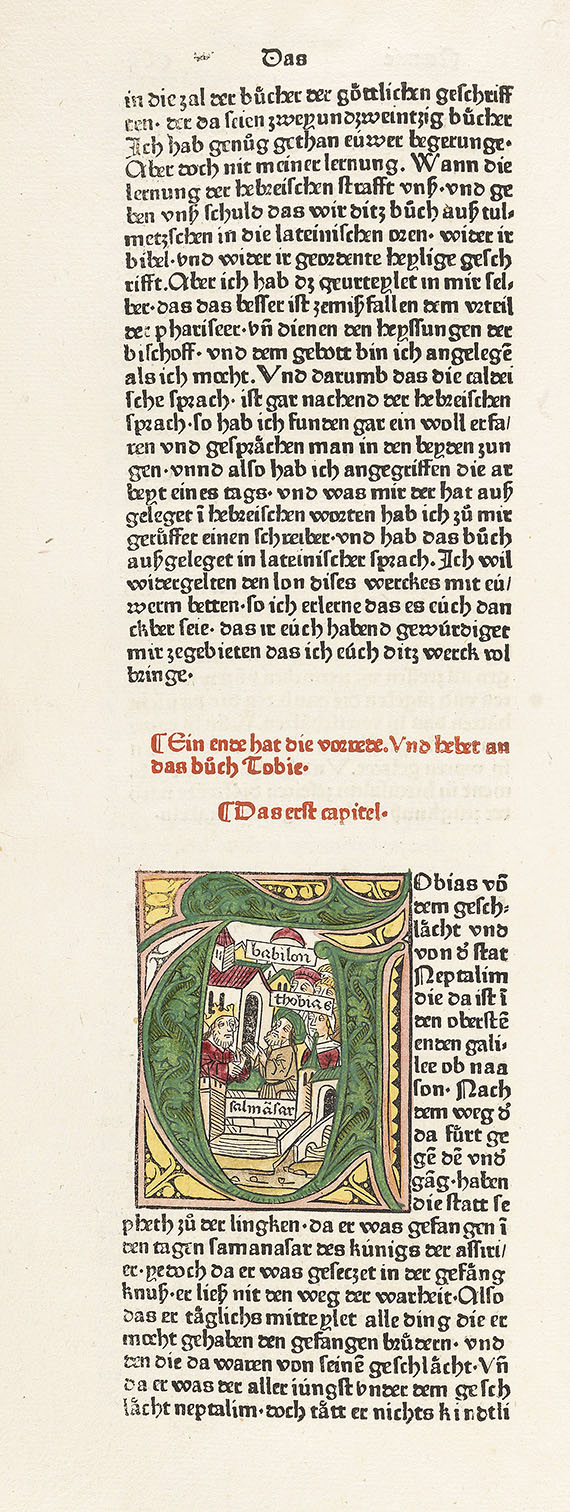 Das
in die zal der bůcher der göttlichen geschriff
ten· der da seien zweyundzweintzig bůcher
Ich hab genůg gethan eüwer begerunge·
Aber doch nit meiner lernung. Wann die
lernung der hebreischen strafft vnß·vnd ge
ben vnß schuld das wir ditz bůch auß tul⸗
metzschen in die lateinischen oren· wider ir
bibel·vnd wider ir geordente heylige gesch
rifft.Aber ich hab dz geurteylet in mir sel⸗
ber·das das besser ist zemißfallen dem vrteil
der phariseer·vñ dienen den heyssungen der
bischoff· vnd dem gebott bin ich angelegē
als ich mocht.Vnd darumb das die caldei
sche sprach· ist gar nachend der hebreischen
sprach·so hab ich funden gar ein woll erfa/
ren vnd gesprächen man in den beyden zun
gen·vnnd also hab ich angegriffen die ar
beyt eines tags· vnd was mir der hat auß
geleget ī hebreischen worten hab ich zů mir
gerůffet einen schreiber·vnd hab das bůch
außgeleget in lateinischer sprach.Ich wil
widergelten den lon dises werckes mit eü/
werm betten·so ich erlerne das es eüch dan
ckber seie· das ir eüch habend gewürdiget
mir zegebieten das ich eüch ditz werck vol
bringe·
¶Ein ende hat die vorrede.Vnd hebet an
das bůch Tobie·
¶Das erst capitel·
babilon
thobias
salmāsar
Obias vō
dem gesch⸗
lächt vnd
von d̕ stat
Neptalim
die da ist ī
den oberstē
enden gali⸗
lee ob naa
son· Nach
dem weg d̕
da fürt ge
gē dē vnd̕
gāg·haben
die statt se
pheth zů der lingken·da er was gefangen ī
den tagen samanasar des künigs der assiri/
er·yedoch da er was gesetzet in der gefäng
knuß·er ließ nit den weg der warheit·Also
das er täglichs mitteylet alle ding die er
mocht gehaben den gefangen brüdern· vnd
den die da waren von seinē geschlächt·Vñ
da er was der aller iüngst vnder dem gesch
lächt neptalim·doch tått er nichts kindtli